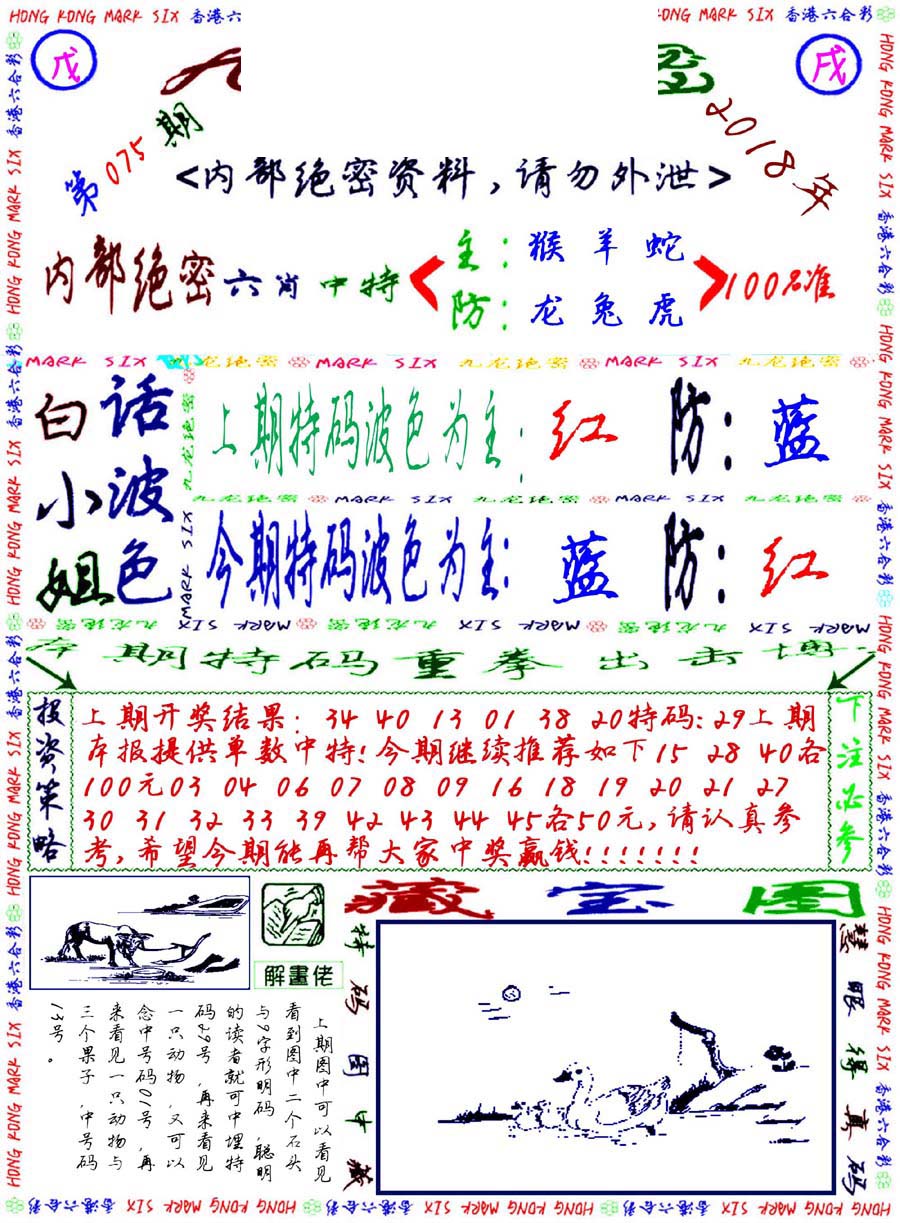 HONG KONG MARK SIX 香港六合彩
戊
戌
第075期
2018年
<内部绝密资料,请勿外泄>
内部绝密六肖中特
主:猴羊蛇
防:龙兔虎
100%准
MARK SIX 九龙绝密 MARK SIX 九龙绝密 MARK SIX 九龙绝密
白话
小波
姐色
上期特码波色为主:红 防:蓝
九龙绝密 MARK SIX 九龙绝密 MARK SIX 九龙绝密
今期特码波色为主:蓝 防:红
期特码重拳出击
投资策略
上期开奖结果:34 40 13 01 38 20特码:29上期
本报提供单数中特!今期继续推荐如下15 28 40各
100元03 04 06 07 08 09 16 18 19 20 21 27
30 31 32 33 39 42 43 44 45各50元,请认真参
考,希望今期能再帮大家中奖赢钱!!!!!!!
下注必参
藏宝图
解畫佬
上期图中可以看见
看到图中二个石头
与9字形明码,聪明
的读者就可中埋特
码29号,再来看见
一只动物,又可以
念中号码01号,再
来看见一只动物与
三个果子,中号码
13号。
特码图中藏
慧眼得真码